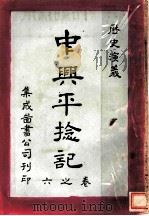 歷史演義
中興平捻記
卷之六
集成圖書公司刊印